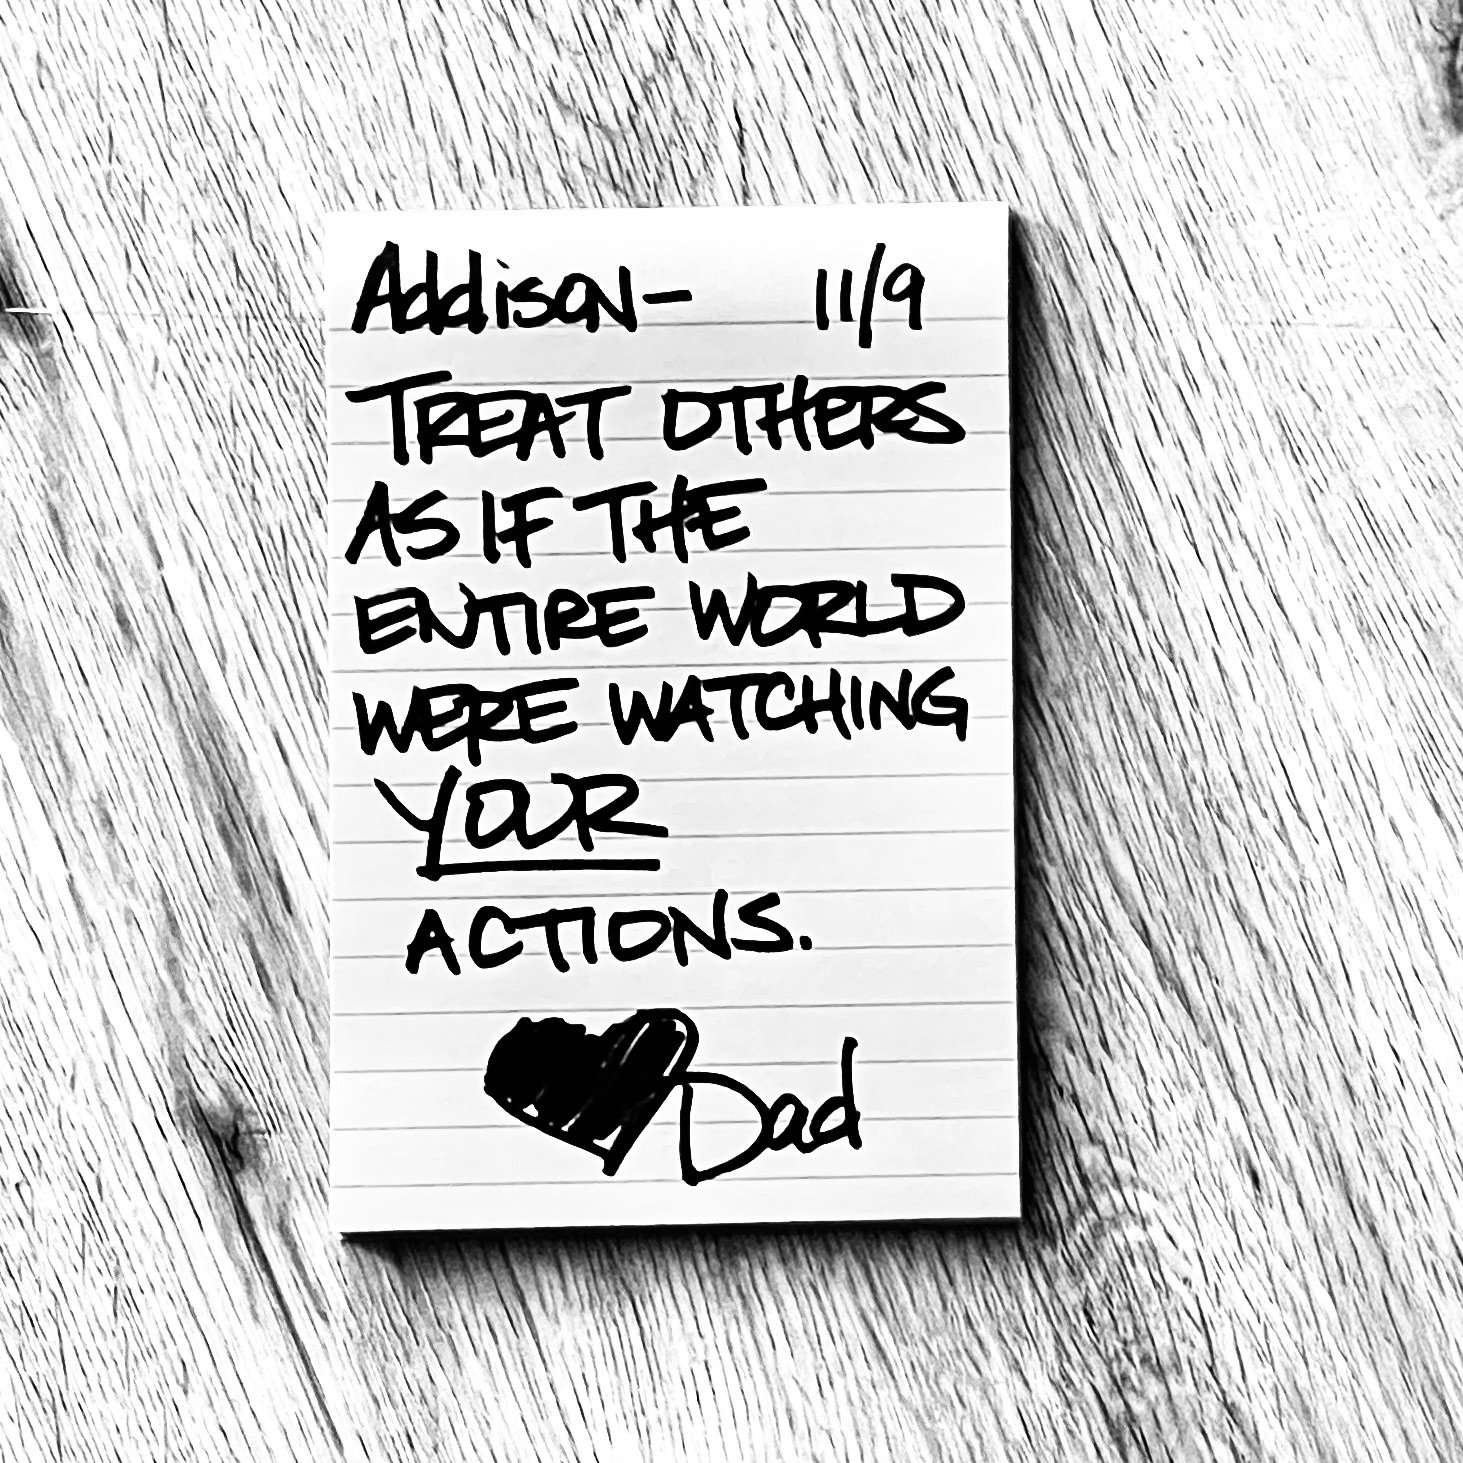 Addison- 11/9
TREAT OTHERS
AS IF THE
ENTIRE WORLD
WERE WATCHING
YOUR
ACTIONS.
Dad